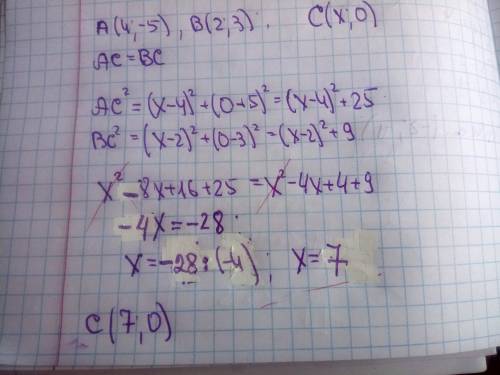 A(4;-5), B(2;3). C(x;0)
AC=BC
AC²=(x-4)²+(0+5)²=(x-4)²+25
BC²=(x-2)²+(0-3)²=(x-2)²+9
x²-8x+16+25=x²-4x+4+9
-4x=-28
x=-28:(-4); x=7
C(7;0)